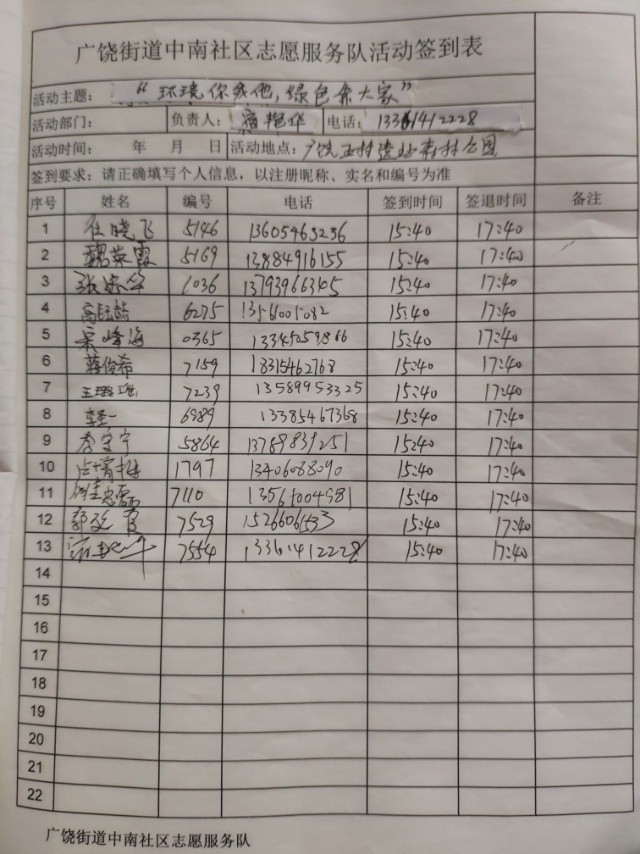 广饶街道中南社区志愿服务队活动签到表
活动主题： “环境你我他，绿色靠大家”
活动部门： 负责人： 宿艳华 电话： 13361412228
活动时间： 年 月 日 活动地点： 广饶五村遗址森林公园
签到要求：请正确填写个人信息，以注册昵称、实名和编号为准
序号 姓名 编号 电话 签到时间 签退时间 备注
1 任晓飞 5146 13605463236 15:40 17:40
2 魏荣霞 5169 13884916155 15:40 17:40
3 1036 13793966345 15:40 17:40
4 6275 13561005082 15:40 17:40
5 宋峰海 0365 15:40 17:40
6 蒋俊希 7159 18315462768 15:40 17:40
7 7239 13589953325 15:40 17:40
8 6989 13385467368 15:40 17:40
9 李守宁 5864 13789839251 15:40 17:40
10 1797 13406068090 15:40 17:40
11 7110 13561004981 15:40 17:40
12 7529 15:40 17:40
13 7554 13361412228 15:40 17:40
14
15
16
17
18
19
20
21
22
广饶街道中南社区志愿服务队